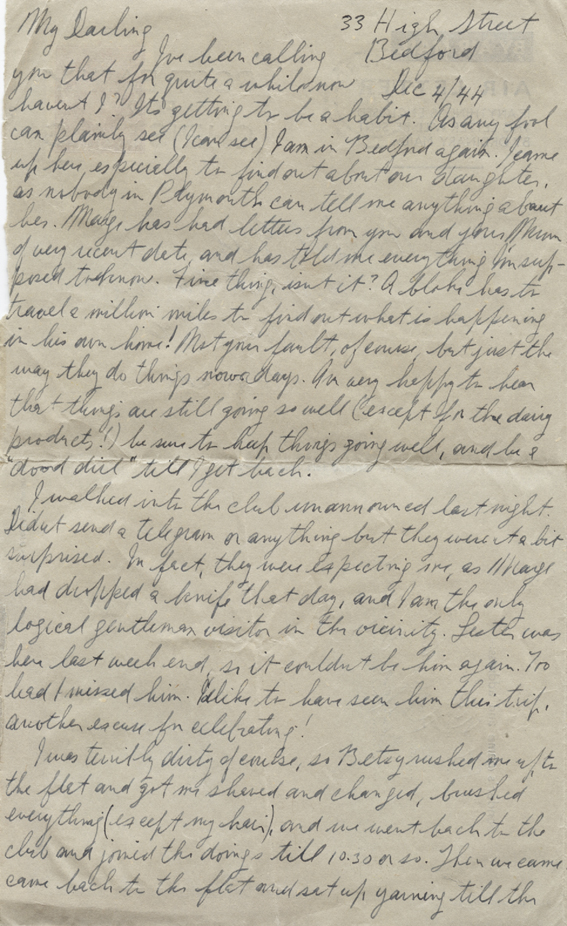 My Darling
33 High Street
Bedford
Dec 4/44
I've been calling
you that for quite a while now
haven't I? It's getting to be a habit. As any fool
can plainly see (I can see) I am in Bedford again. I came
up here especially to find out about our daughter,
as nobody in Plymouth can tell me anything about
her. Marge has had letters from you and your Mum
of very recent date, and has told me everything I'm sup-
posed to know. Fine thing, isn't it? A bloke has to
travel a million miles to find out what is happening
in his own home! Not your fault, of course, but just the
way they do things nowadays. Am very happy to hear
that things are still going so well (except for the dairy
products!) be sure to keep things going well, and be a
"dood dirl" till I get back.
I walked into the club unannounced last night.
Didn't send a telegram or anything but they weren't a bit
surprised. In fact, they were expecting me, as Marge
had dropped a knife that day, and I am the only
logical gentleman visitor in the vicinity. Lester was
here last week end, so it couldn't be him again. Too
bad I missed him. I'd like to have seen him this trip,
another excuse for celebrating!
I was terribly dirty of course, so Betsy rushed me up to
the flat and got me shaved and changed, brushed
everything (except my hair), and we went back to the
club and joined the doings till 10.30 or so. Then we came
came back to the flat and sat up yarning till the